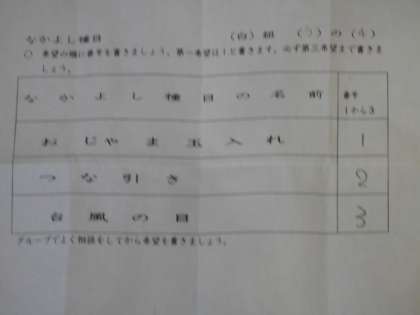 なかよし種目 (白)組 (う)の(4)
○ 希望の欄に番号を書きましょう。第一希望は1と書きます。必ず第三希望まで書きま
しょう。
なかよし種目の名前 番号
1から3
おじゃま玉入れ 1
つな引き 2
台風の目 3
グループでよく相談をしてから希望を書きましょう。